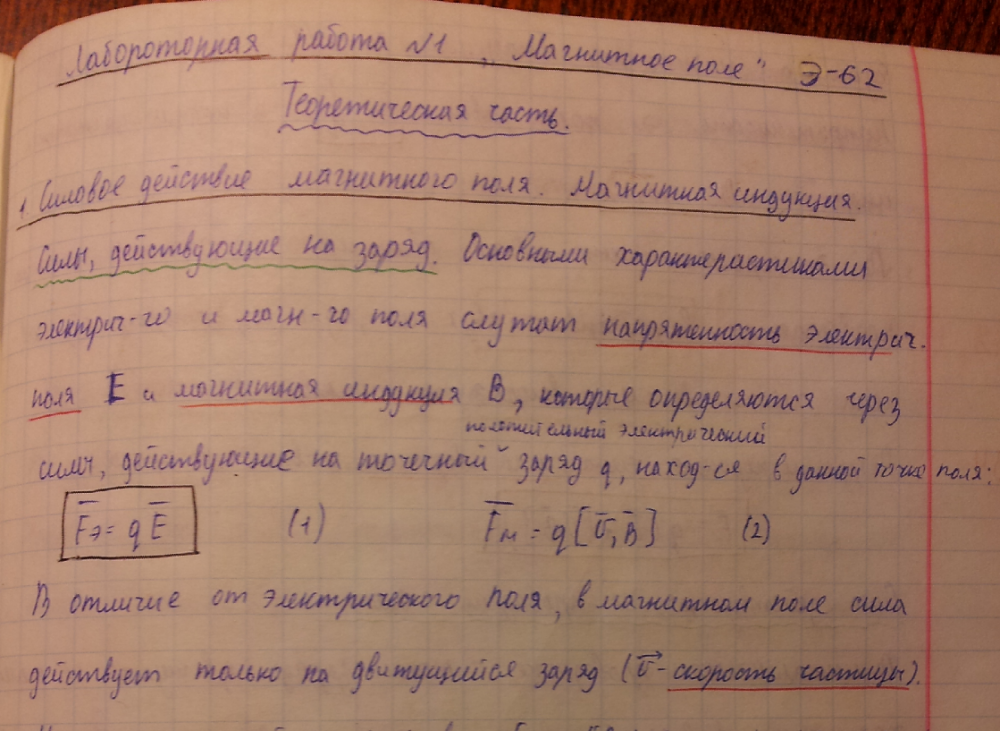 Лабороторная работа №1 „Магнитное поле" Э-62
Теоретическая часть.
1. Силовое действие магнитного поля. Магнитная индукция.
Силы, действующие на заряд. Основными характерастиками
электрич-го и магн-го поля служат напряженность электрич.
поля E и магнитная индукция B, которые определяются через
положительный электрический
силы, действующие на точечный заряд q, наход-ся в данной точке поля:
F̅э = q E̅ (1) F̅м = q [υ̅, B̅] (2)
В отличие от электрического поля, в магнитном поле сила
действует только на движущийся заряд (υ⃗ - скорость частицы).